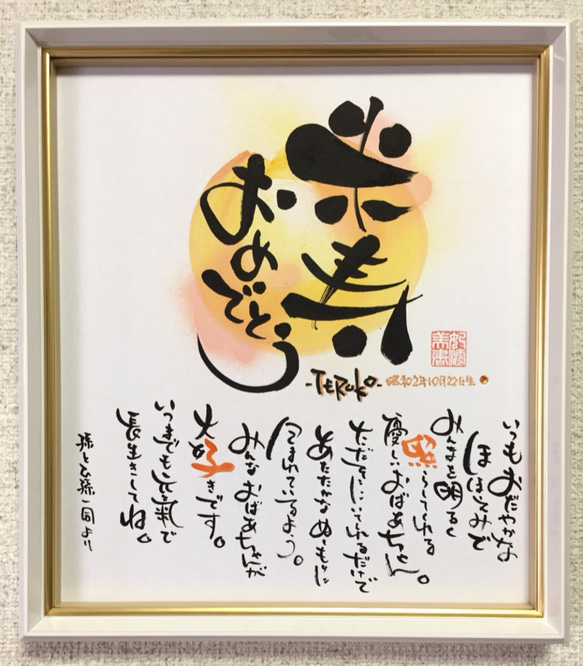 米寿
おめでとう
-TERUKO-
昭和2年10月22日生
いつもおだやかな
ほほえみで
みんなを明るく
照らしてくれる
優しいおばあちゃん。
ただそこにいてくれるだけで
あたたかなぬくもりに
包まれているよう。
みんなおばあちゃんが
大好きです。
いつまでも元氣で
長生きしてね。
孫と玄孫一同より